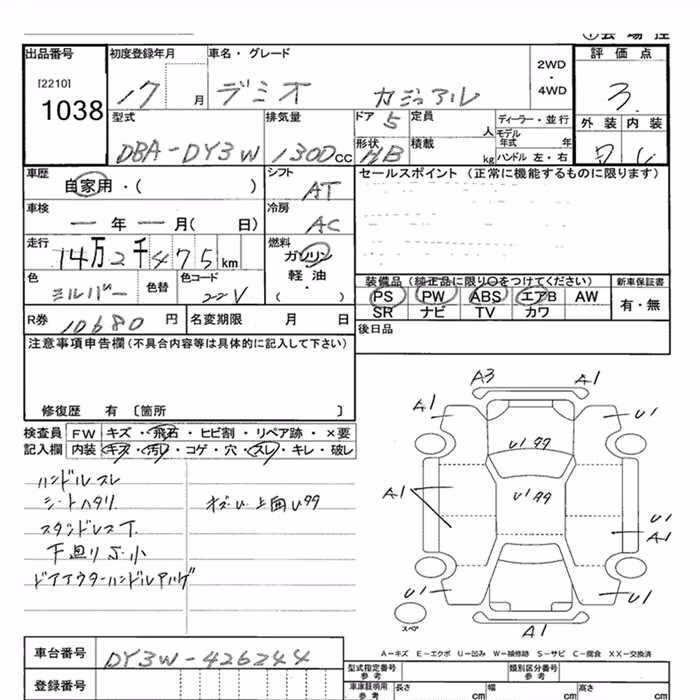 出品番号
[2210]
1038
初度登録年月
17 月
車名・グレード
デミオ カジュアル
2WD
・
4WD
評価点
3
外装 内装
型式
DBA-DY3W
排気量
1300cc
ドア
5
形状
HB
定員
人
積載
kg
ディーラー・並行
モデル年式 年
ハンドル 左・右
車歴
自家用・( )
シフト
AT
セールスポイント (正常に機能するものに限ります)
車検
― 年 ― 月( 日)
冷房
AC
走行
14万2千475km
燃料
ガソリン
軽油
・
( )
色
シルバー
色替
色コード
22V
装備品 (純正品に限り○をつけてください)
PS PW ABS エアB AW
SR ナビ TV カワ
新車保証書
有・無
R券 10680 円
名変期限 月 日
後日品
注意事項申告欄(不具合内容等は具体的に記入して下さい)
修復歴 有 〔箇所 〕
検査員 FW キズ・飛石・ヒビ割・リペア跡・×要
記入欄 内装 キズ・汚レ・コゲ・穴・スレ・キレ・破レ
ハンドルスレ
シートヘタリ
下廻りS小
ドアアウターハンドルアハゲ
上面Uタタ
A3
A1
A1
U1
Uタタ
U1タタ
A1
U1
A1
U1
U1
A1
スペア
A-キズ E-エクボ U-凹み W-補修跡 S-サビ C-腐食 XX-交換済
車台番号
DY3W-426244
登録番号
型式指定番号
参考
類別区分番号
参考
車庫証明用
参考
長さ cm
幅 cm
高さ cm